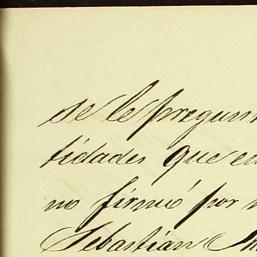 se le pregun
tidades que en
no firmó por n
Sebastian